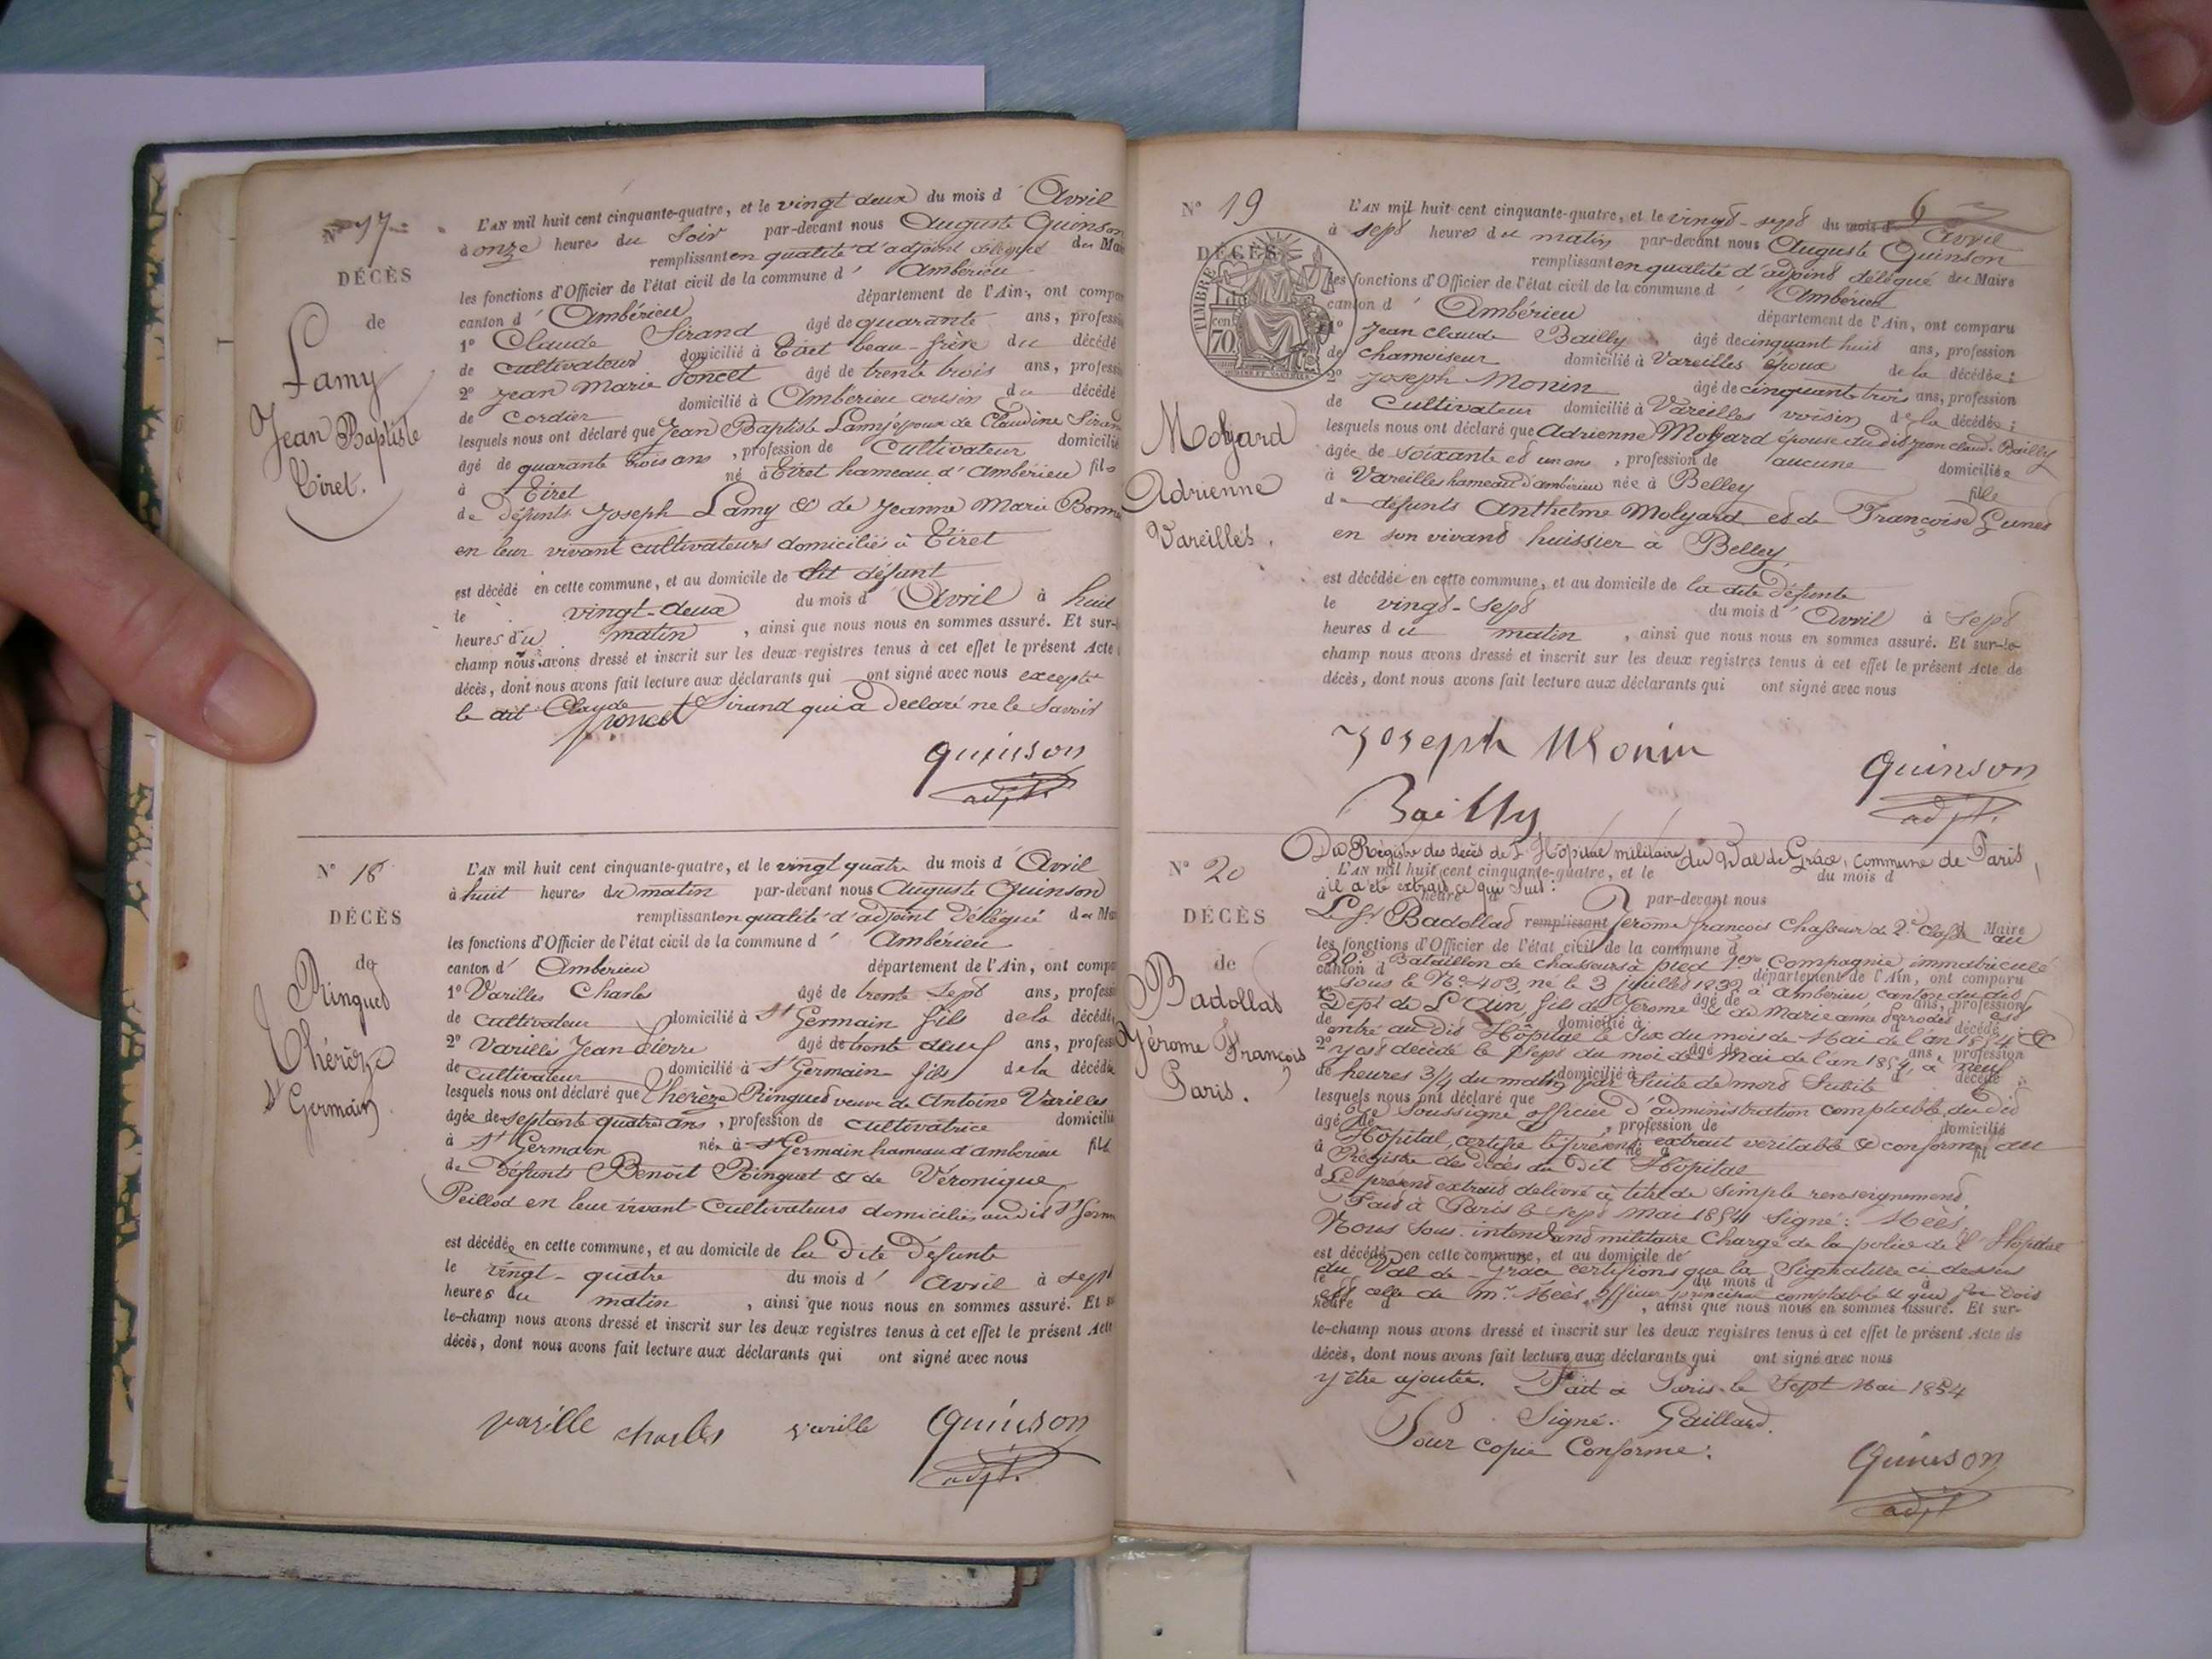 N° 17
DÉCÈS
de
Lamy
Jean Baptiste
Tiret.
L'AN mil huit cent cinquante-quatre, et le vingt deux du mois d' Avril
à onze heures du Soir par-devant nous Auguste Quinson
remplissant en qualité d'adjoint délégué du Mai
les fonctions d'Officier de l'état civil de la commune d' Ambérieu
canton d' Ambérieu département de l'Ain, ont compa
1° Claude Sirand âgé de quarante ans, profess
de cultivateur domicilié à Tiret beau-frère du décédé
2° Jean Marie Poncet âgé de trente trois ans, profess
de Cordier domicilié à Ambérieu cousin du décédé
lesquels nous ont déclaré que Jean Baptiste Lamy époux de Claudine Siran
âgé de quarante trois ans, profession de Cultivateur domicilié
à Tiret né à Tiret hameau d'Ambérieu fils
de défunts Joseph Lamy & de Jeanne Marie Bonn
en leur vivant cultivateurs domiciliés à Tiret
est décédé en cette commune, et au domicile de dit défunt
le vingt-deux du mois d' Avril à huit
heures du matin, ainsi que nous nous en sommes assuré. Et sur-
champ nous avons dressé et inscrit sur les deux registres tenus à cet effet le présent Acte
décès, dont nous avons fait lecture aux déclarants qui ont signé avec nous excepté
le dit Claude Sirand qui a declaré ne le Savoir
poncet
quinson
adjt.
N° 18
DÉCÈS
de
Ringued
Thérèze
St Germain.
L'AN mil huit cent cinquante-quatre, et le vingt quatre du mois d' Avril
à huit heures du matin par-devant nous Auguste Quinson
remplissant en qualité d'adjoint Délégué du Mai
les fonctions d'Officier de l'état civil de la commune d' Ambérieu
canton d' Amberieu département de l'Ain, ont compa
1° Varilles Charles âgé de trente sept ans, profess
de cultivateur domicilié à St Germain fils de la décédée
2° Varilles Jean Pierre âgé de trente deux ans, profess
de cultivateur domicilié à St Germain fils de la décédée
lesquels nous ont déclaré que Thérèze Ringued veuve de Antoine Varilles
âgée de septante quatre ans, profession de cultivatrice domicili
à St Germain née à St Germain hameau d'amberieu fille
de Défunts Benoit Ringuet & de Véronique
Peillod en leur vivant Cultivateurs domiciliés au dit St Germ
est décédée en cette commune, et au domicile de la Dite Défunte
le vingt-quatre du mois d' Avril à sept
heures du matin, ainsi que nous nous en sommes assuré. Et s
le-champ nous avons dressé et inscrit sur les deux registres tenus à cet effet le présent Acte
décès, dont nous avons fait lecture aux déclarants qui ont signé avec nous
varille charles varille Quinson
adjt.
6
N° 19
DÉCÈS
TIMBRE
70
cent
Molyard
Adrienne
Vareilles.
L'AN mil huit cent cinquante-quatre, et le vingt-sept du mois d' Avril
à sept heures du matin par-devant nous Auguste Quinson
remplissant en qualité d'adjoint délégué du Maire
les fonctions d'Officier de l'état civil de la commune d' Ambérieu
canton d' Ambérieu département de l'Ain, ont comparu
1° Jean Claude Bailly âgé de cinquant huit ans, profession
de chamoiseur domicilié à Vareilles époux de la décédée;
2° Joseph Monin âgé de cinquant trois ans, profession
de Cultivateur domicilié à Vareilles voisin de la décédée;
lesquels nous ont déclaré que Adrienne Molyard épouse du dit Jean Claude Bailly
âgée de soixante et un ans, profession de aucune domiciliée
à Vareilles hameau d'ambérieu née à Belley fille
de défunts Anthelme Molyard et de Françoise
en son vivant huissier à Belley
est décédée en cette commune, et au domicile de la dite défunte
le vingt-sept du mois d' Avril à sept
heures du matin, ainsi que nous nous en sommes assuré. Et sur-le-
champ nous avons dressé et inscrit sur les deux registres tenus à cet effet le présent Acte de
décès, dont nous avons fait lecture aux déclarants qui ont signé avec nous
Joseph Monin
Quinson
adjt.
Bailly
N° 20
DÉCÈS
de
Badollat
Jérome François
Paris.
Du Régistre des décès de l'Hôpital militaire du Val de Grâce, commune de Paris,
L'AN mil huit cent cinquante-quatre, et le du mois d
il a été extrait ce qui suit:
à heure d par-devant nous
Le Sr Badollat remplissant Jerome françois Chasseur de 2e classe au Maire
les fonctions d'Officier de l'état civil de la commune d
20e Bataillon de chasseurs à pied 1ere Compagnie immatriculé
canton d département de l'Ain, ont comparu
sous le N° 403, né le 3 juillet 1832 à Ambérieu, canton du dit
1° âgé de ans, profession
Dept de L'Ain, fils de Jérome & de Marie anne est
de domicilié à d décédé
entré au dit Hôpital le Six du mois de Mai de l'an 1854 &
2° âgé de ans, profession
y est décédé le sept du moi de Mai de l'an 1854, à neuf
de domicilié à d décédé
heures 3/4 du matin, par Suite de mort Subite
lesquels nous ont déclaré que
Le Soussigné officier d'administration comptable du dit
âgé de, profession de domicilié
Hôpital, certifie le présent extrait véritable & conforme au
à né à fil
Régistre des décès du Dit Hôpital
d
Le présent extrait délivré à titre de simple renseignement.
Fait à Paris le sept Mai 1854 Signé: Méès
Nous Sous-intendant militaire Chargé de la police de l'Hôpital
est décédé en cette commune, et au domicile de
du Val de-Grâce certifions que la Signature ci dessus
le du mois d à
est celle de Mr Méès, officier principal comptable & que foi doit
heure d, ainsi que nous nous en sommes assuré. Et sur-
le-champ nous avons dressé et inscrit sur les deux registres tenus à cet effet le présent Acte de
décès, dont nous avons fait lecture aux déclarants qui ont signé avec nous
y être ajoutée. Fait à Paris le Sept Mai 1854
Signé. Gaillard.
Pour copie Conforme:
Quinson
adjt